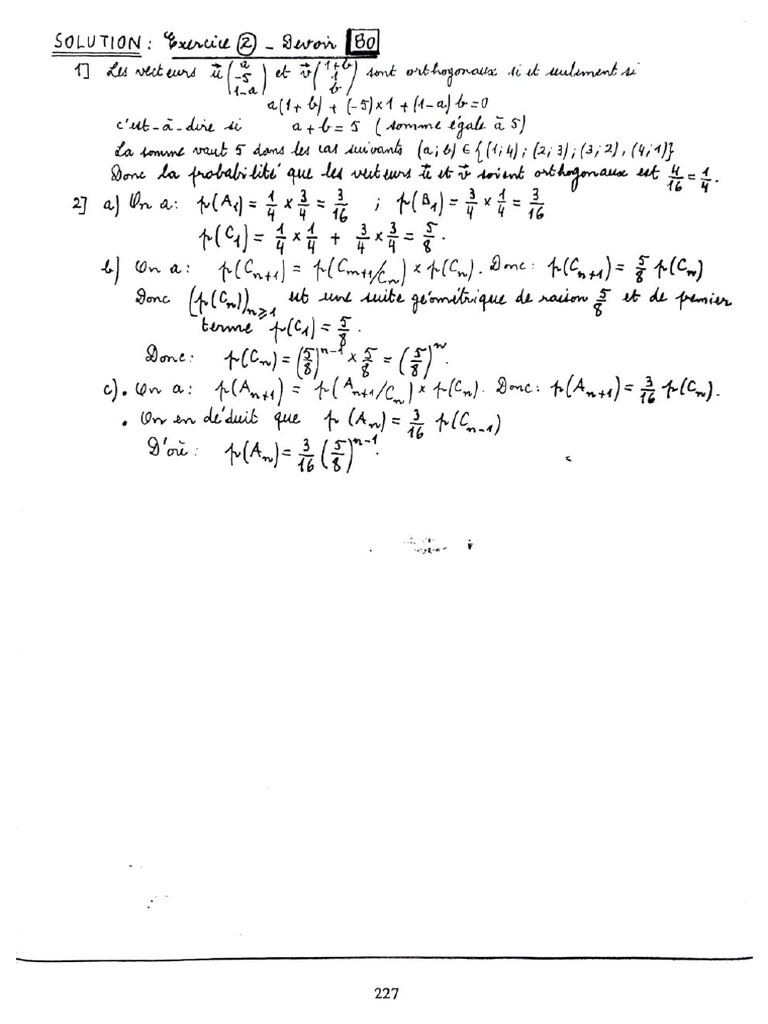 SOLUTION : Exercice ② - Devoir 80
1] Les vecteurs u⃗ (a ; -5 ; 1-a) et v⃗ (1+b ; 1 ; b) sont orthogonaux si et seulement si
a(1+b) + (-5)×1 + (1-a) b = 0
c'est-à-dire si a + b = 5 (somme égale à 5)
La somme vaut 5 dans les cas suivants (a; b) ∈ {(1; 4) ; (2; 3) ; (3; 2) , (4; 1)}
Donc la probabilité que les vecteurs u⃗ et v⃗ soient orthogonaux est 4/16 = 1/4.
2] a) On a : p(A₁) = 1/4 × 3/4 = 3/16 ; p(B₁) = 3/4 × 1/4 = 3/16
p(C₁) = 1/4 × 1/4 + 3/4 × 3/4 = 5/8.
b) On a : p(Cₙ₊₁) = p(Cₙ₊₁/Cₙ) × p(Cₙ). Donc : p(Cₙ₊₁) = 5/8 p(Cₙ)
Donc (p(Cₙ))ₙ≥₁ est une suite géométrique de raison 5/8 et de premier
terme p(C₁) = 5/8.
Donc : p(Cₙ) = (5/8)ⁿ⁻¹ × 5/8 = (5/8)ⁿ.
c) • On a : p(Aₙ₊₁) = p(Aₙ₊₁/Cₙ) × p(Cₙ). Donc : p(Aₙ₊₁) = 3/16 p(Cₙ).
• On en déduit que p(Aₙ) = 3/16 p(Cₙ₋₁)
D'où : p(Aₙ) = 3/16 (5/8)ⁿ⁻¹.
227